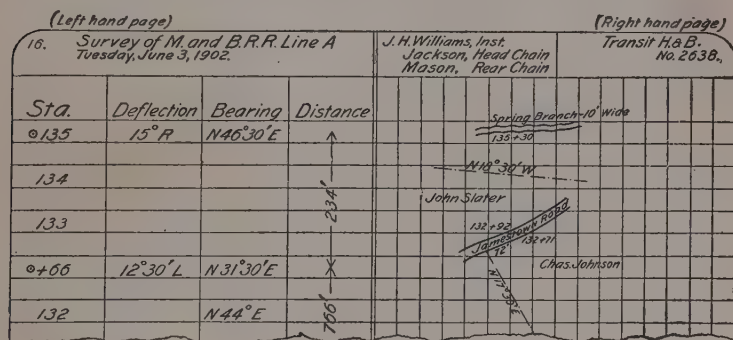 (Left hand page)
(Right hand page)
16. Survey of M. and B.R.R. Line A
Tuesday, June 3, 1902.
J.H. Williams, Inst.
Jackson, Head Chain
Mason, Rear Chain
Transit H.&B.
No. 2638.,
Sta. Deflection Bearing Distance
⊙135 15°R N46°30'E
134
133
⊙+66 12°30'L N31°30'E
132 N44°E
234'
766'
Spring Branch-10' wide
135+30
N18°30'W
John Slater
132+92
Jamestown Road
132+71
72°
Chas. Johnson